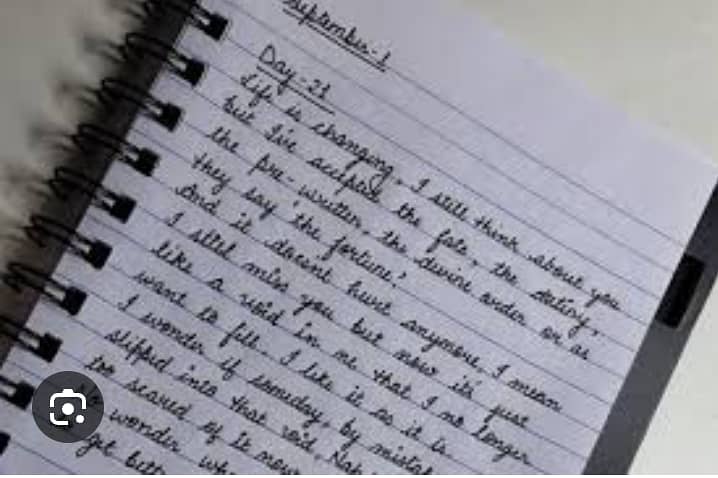 September-1
Day-21
Life is changing. I still think about you
but I've accepted the fate, the destiny,
the pre-written, the devine order or as
they say 'the fortune'.
And it doesn't hurt anymore. I mean
I still miss you but now it's just
like a void in me that I no longer
want to fill. I like it as it is.
I wonder if someday, by mistake
slipped into that void. Nah
too scared of it now
wonder
get